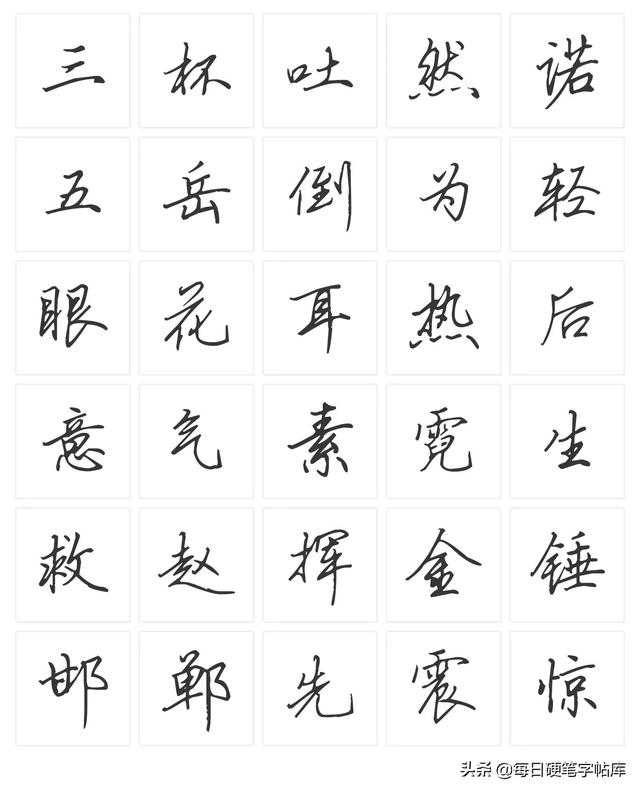 三杯吐然诺
五岳倒为轻
眼花耳热后
意气素霓生
救赵挥金锤
邯郸先震惊
头条 @每日硬笔字帖库